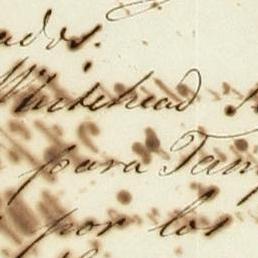 ados.
Whitehead
para Tam
por los